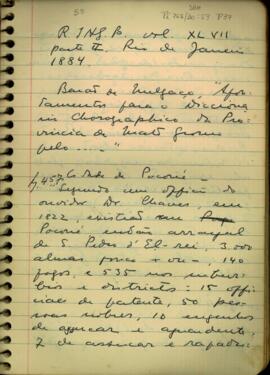 59
R. I. H. G. B., vol. XLVII
parte II. Rio de Janeiro
1884.
Barão de Melgaço, "Apon-
tamentos para o Dicciona-
rio Chorographico da Pro-
vincia de Mato Grosso
pelo ....."
p. 455: Cidade de Poconé -
Segundo um officio do
ouvidor Dr Chaves, em
1822, existião em
Poconé então arraial
de S. Pedro d'El-rei, 3.000
almas pouco + ou -, 140
fogos, e 535 nos subur-
bios e districto: 15 offi-
ciaes de patente, 50 pes-
soas nobres, 10 engenhos
de assucar e aguardente,
7 de assucar e rapadu-